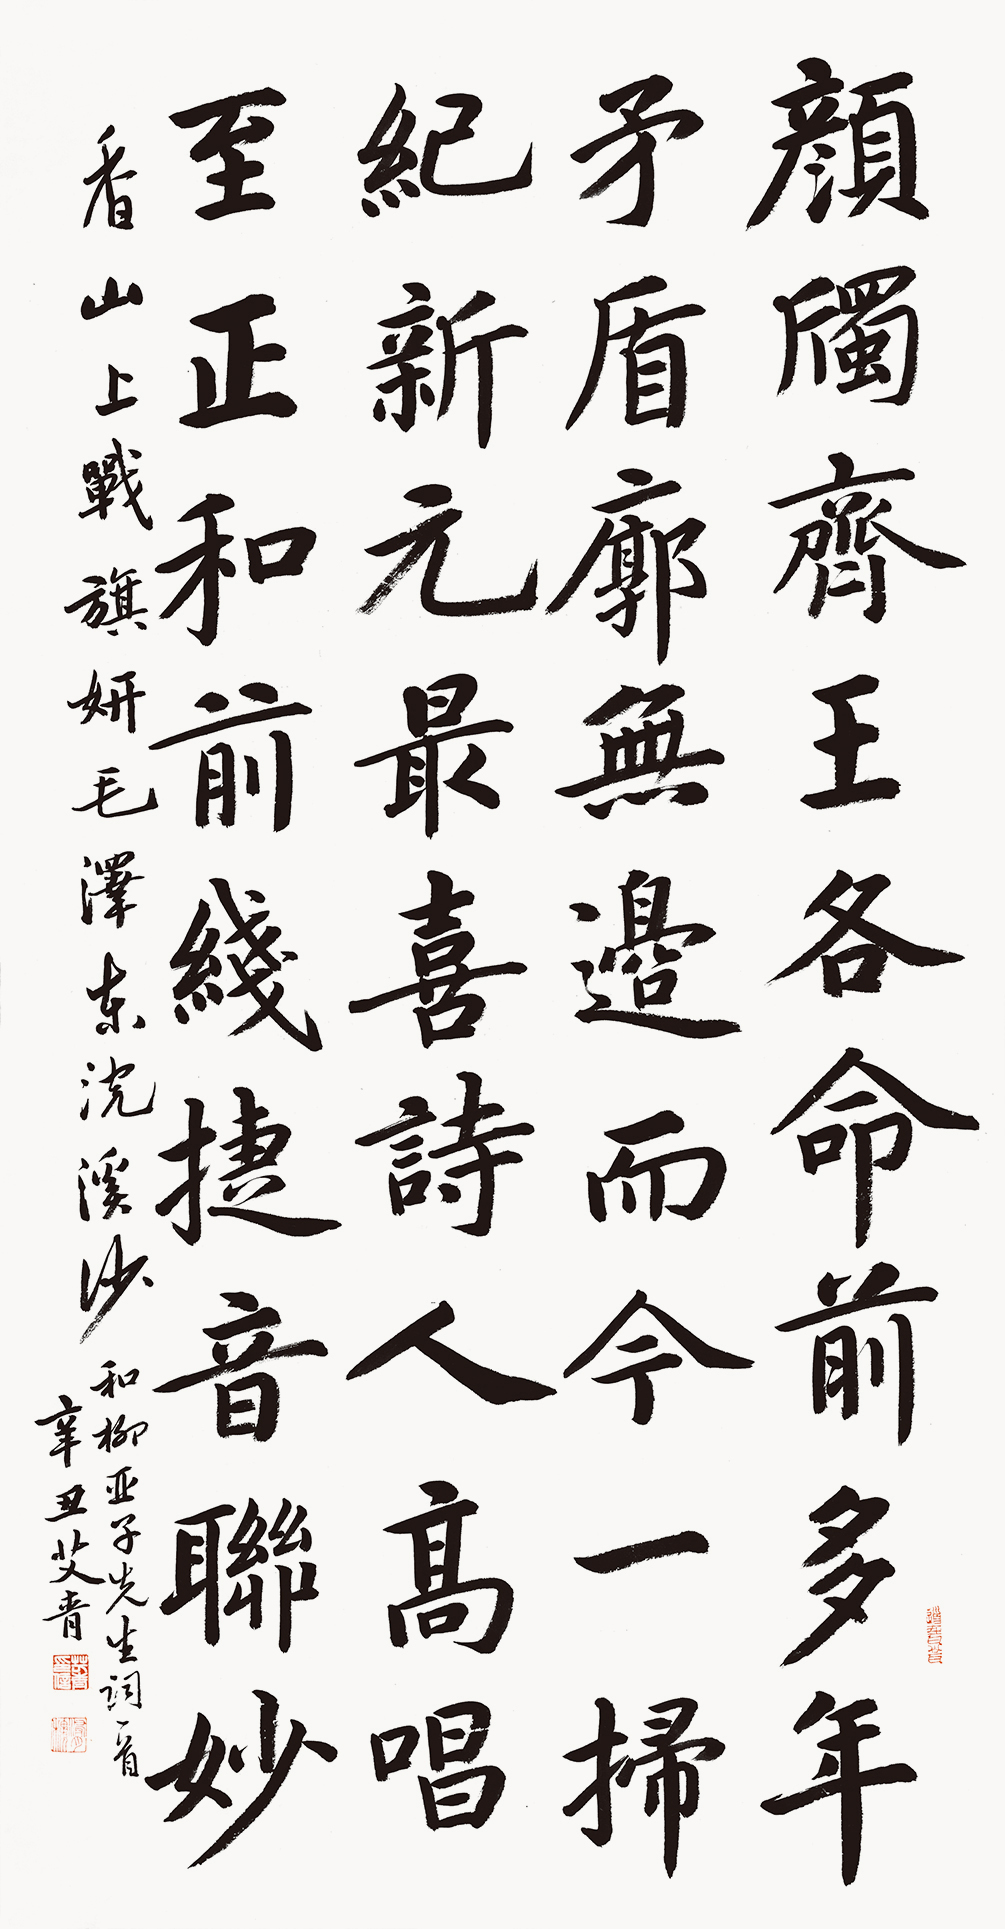 顔斶齊王各命前多年
矛盾廓無邊而今一掃
紀新元最喜詩人髙唱
至正和前綫捷音聯妙
香山上戰旗妍毛澤东浣溪沙和柳亚子先生词一首
辛丑艾青